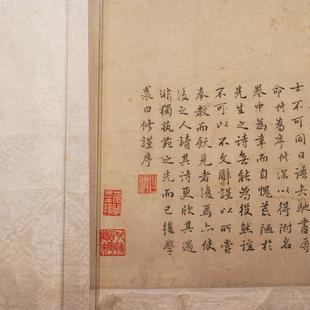 士不可同日語矣馳書辱
命修為序修深以得附名
卷中為幸而自愧荒陋於
先生之詩無能為役然誼
不可以不文辭謹以所嘗
奉教而飫見者復焉亦使
後之人讀其詩更欣其遇
非獨執苑之光而已後學
裘曰修謹序